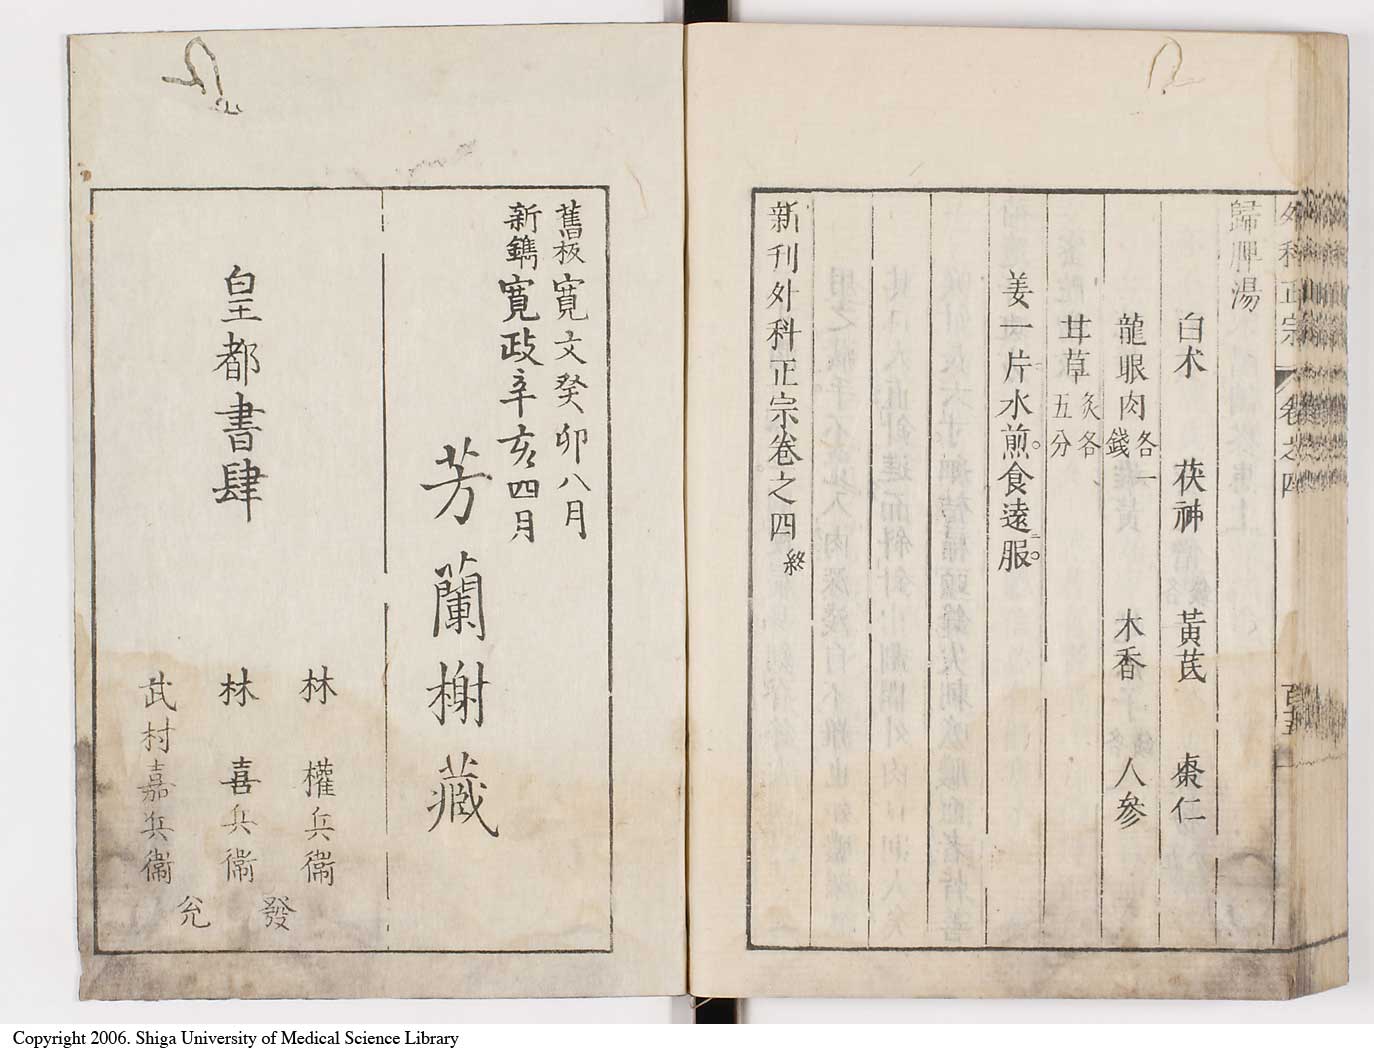 外科正宗 卷之四
歸脾湯
白朮 茯神 黃芪 棗仁
龍眼肉各一錢 木香 人參
甘草炙各五分
姜一片水煎食遠服
新刊外科正宗卷之四終
舊板寬文癸卯八月
新鐫寬政辛亥四月
芳蘭榭藏
皇都書肆
林 權兵衞
林 喜兵衞
武村嘉兵衞
發兌
Copyright 2006. Shiga University of Medical Science Library